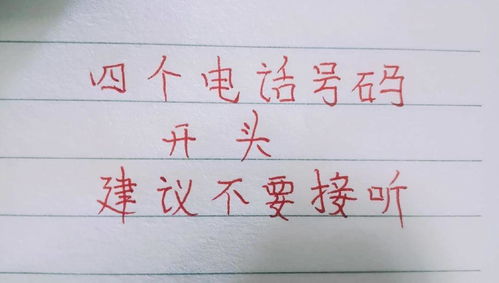 四个电话号码
开头
建议不要接听